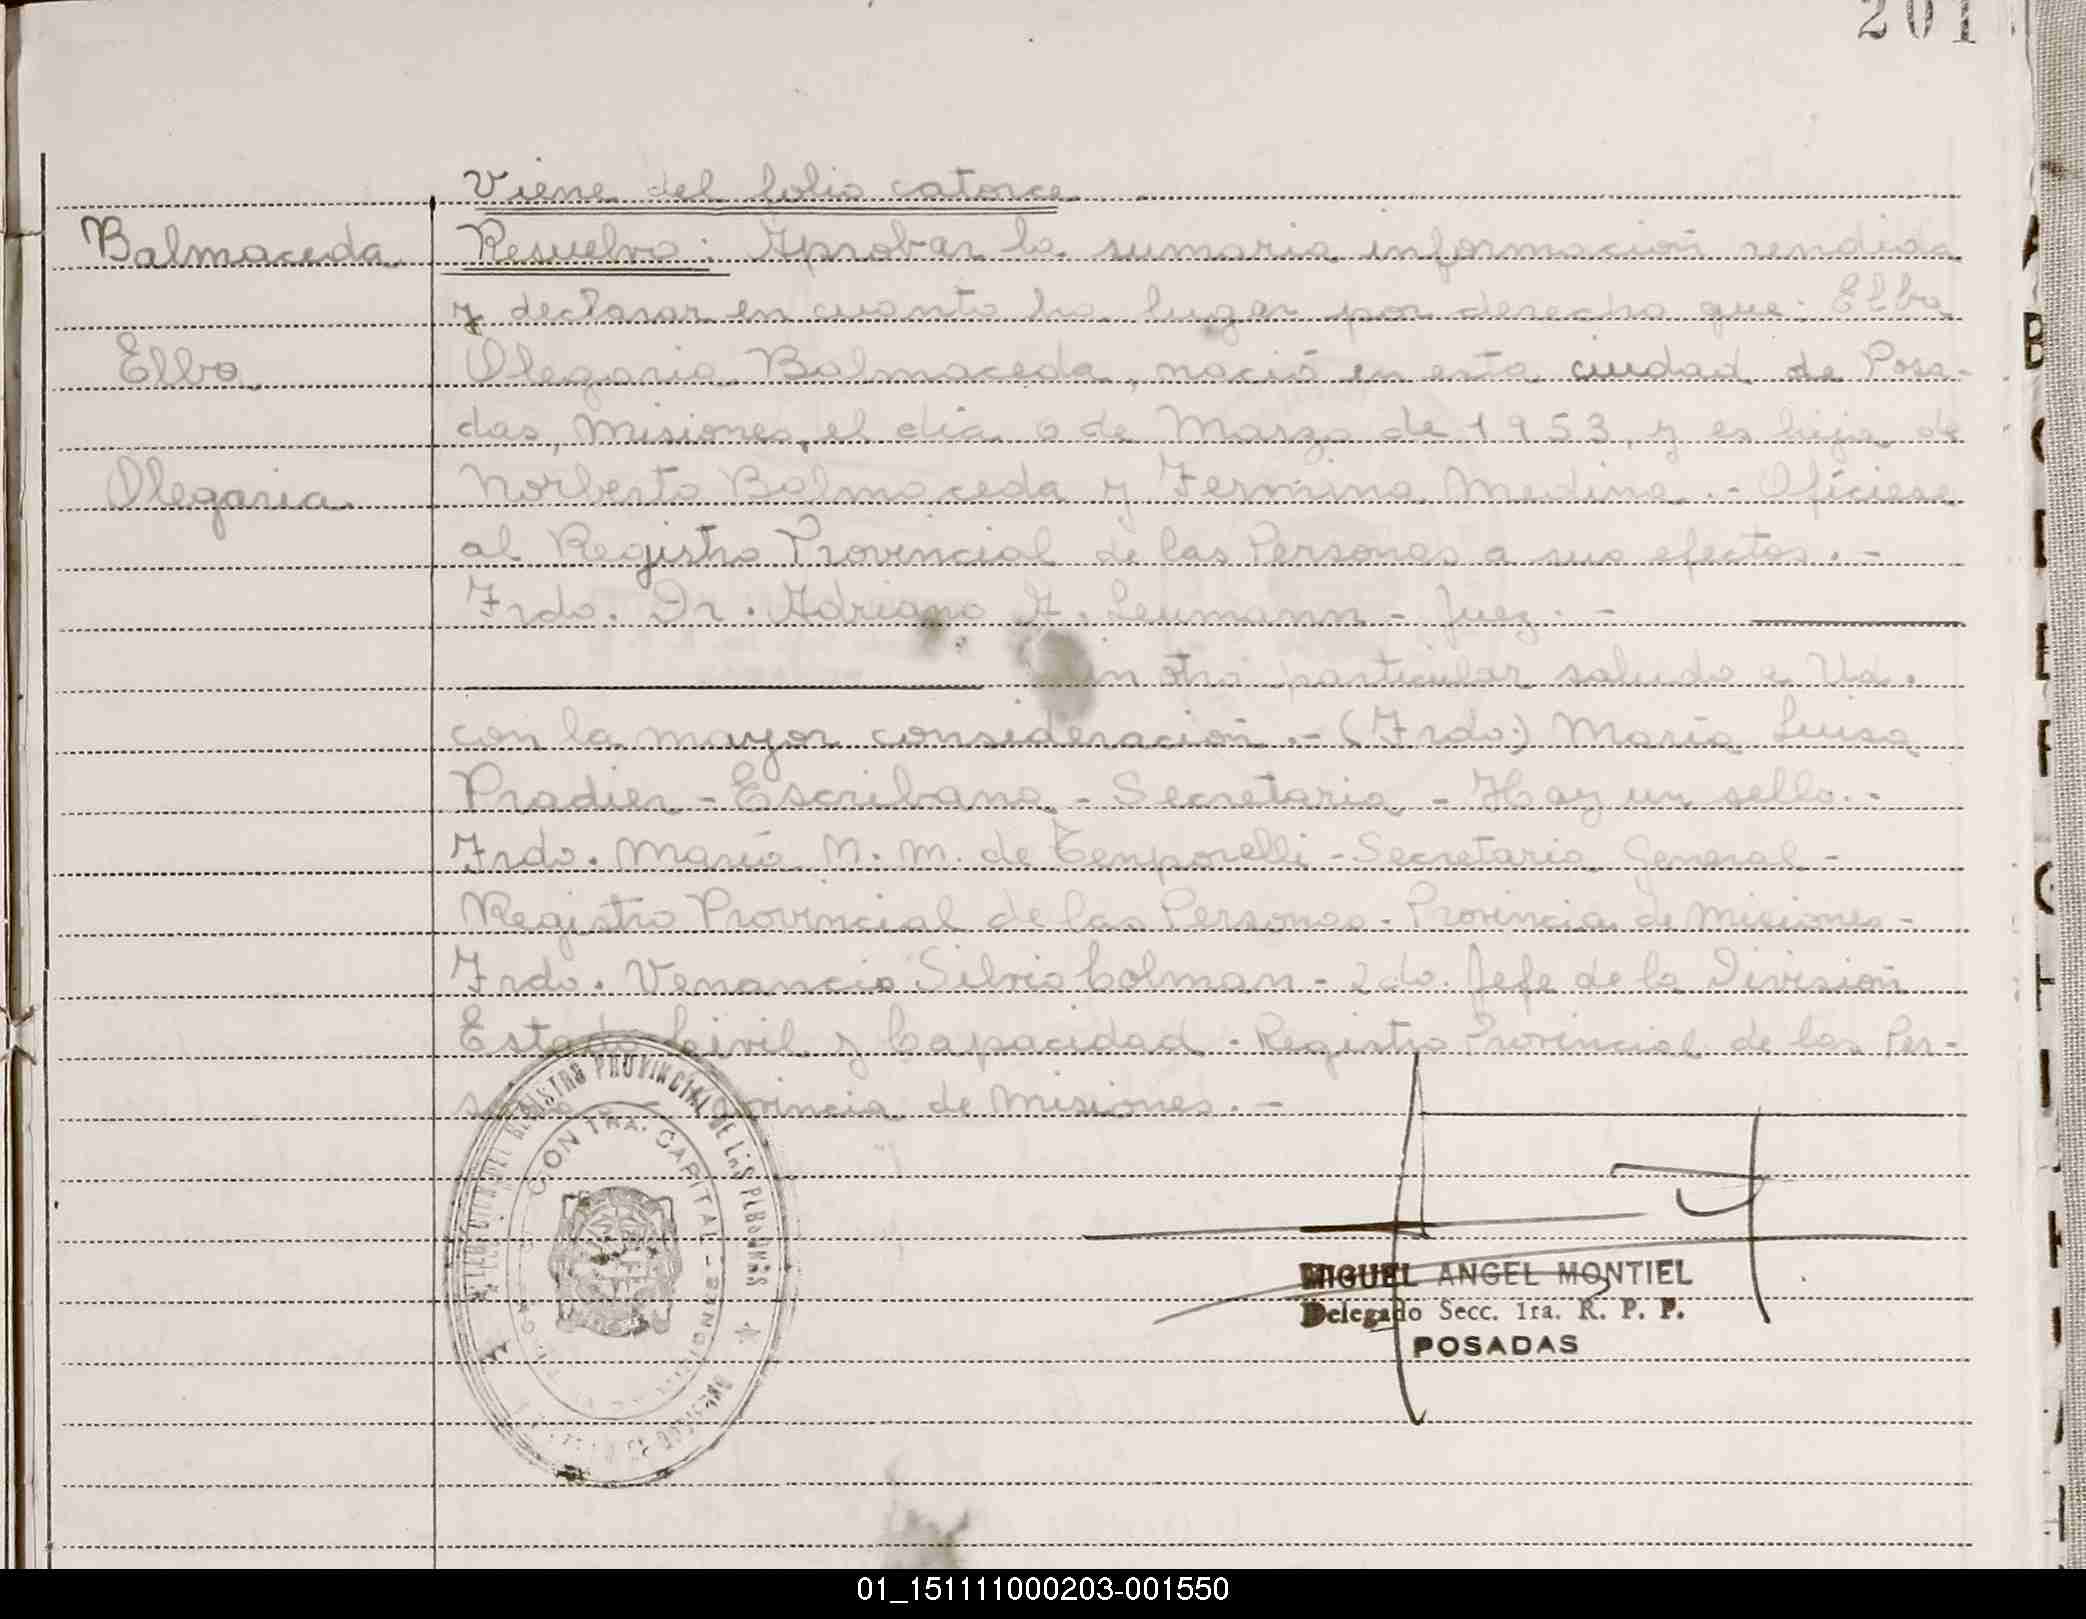 201
Viene del folio catorce
Balmaceda
Elba
Olegaria
Resuelvo: Aprobar la sumaria información rendida
y declarar en cuanto ha lugar por derecho que: Elba
Olegaria Balmaceda, nació en esta ciudad de Posa-
das, Misiones, el día 6 de Marzo de 1953, y es hija de
Norberto Balmaceda y Fermina Medina.- Ofíciese
al Registro Provincial de las Personas a sus efectos.-
Frdo. Dr. Adriano A. Leumann - Juez.-
in otro particular saludo a Ud.
con la mayor consideración.- (Frdo.) María Luisa
Pradier - Escribana - Secretaria - Hay un sello.-
Frdo. María N. M. de Temporelli - Secretaria General -
Registro Provincial de las Personas - Provincia de Misiones -
Frdo. Venancio Silvio Colman - 2do. Jefe de la División
Estado Civil y Capacidad - Registro Provincial de las Per-
vincia de Misiones.-
REGISTRO PROVINCIAL DE LAS PERSONAS
CONTRA: CAPITAL
MIGUEL ANGEL MONTIEL
Delegado Secc. 1ra. R. P. P.
POSADAS
01_151111000203-001550